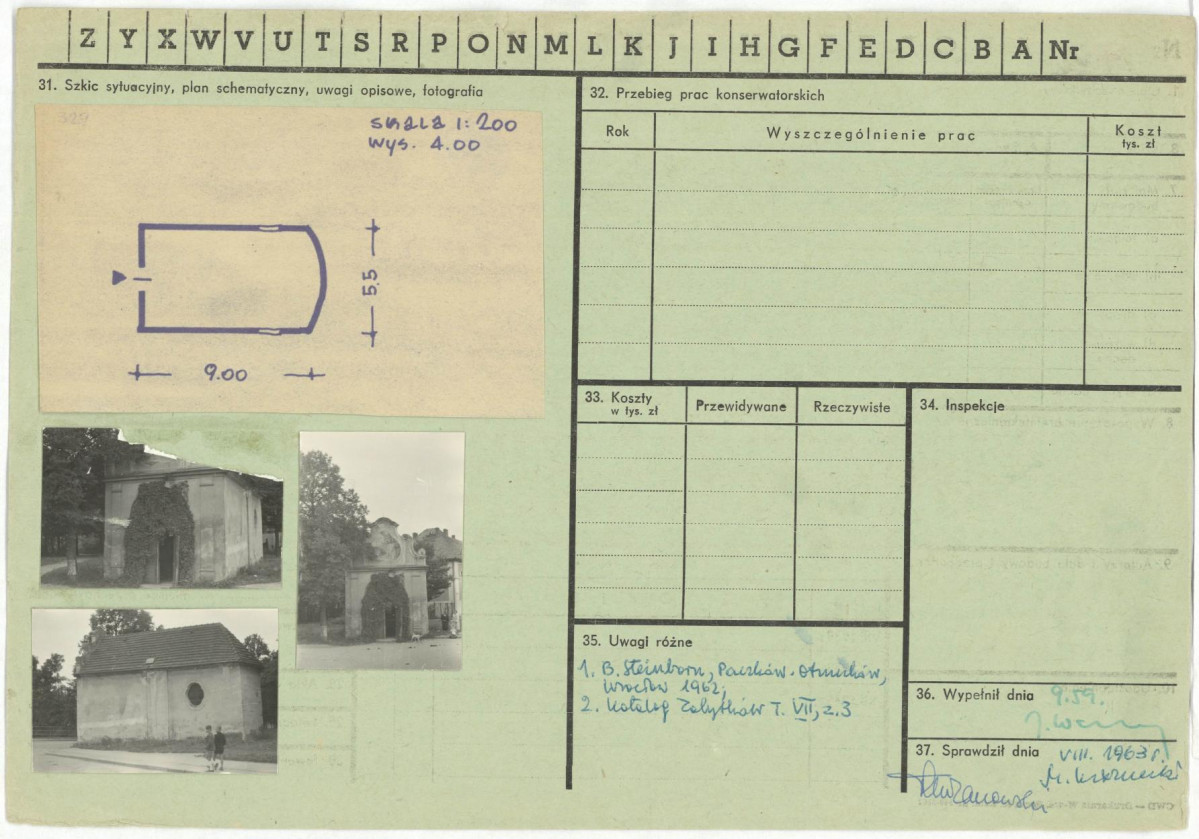 Z Y X W V U T S R P O N M L K J I H G F E D C B A Nr
31. Szkic sytuacyjny, plan schematyczny, uwagi opisowe, fotografia
329
skala 1:200
wys. 4.00
5.5
9.00
32. Przebieg prac konserwatorskich
Rok Wyszczególnienie prac Koszt
tys. zł
33. Koszty
w tys. zł
Przewidywane Rzeczywiste
34. Inspekcje
35. Uwagi różne
1. B. Steinborn, Paczków-Otmuchów,
Wrocław 1962;
2. Katalog Zabytków T. VII, z.3
36. Wypełnił dnia 9.59.
37. Sprawdził dnia VIII. 1963 r.